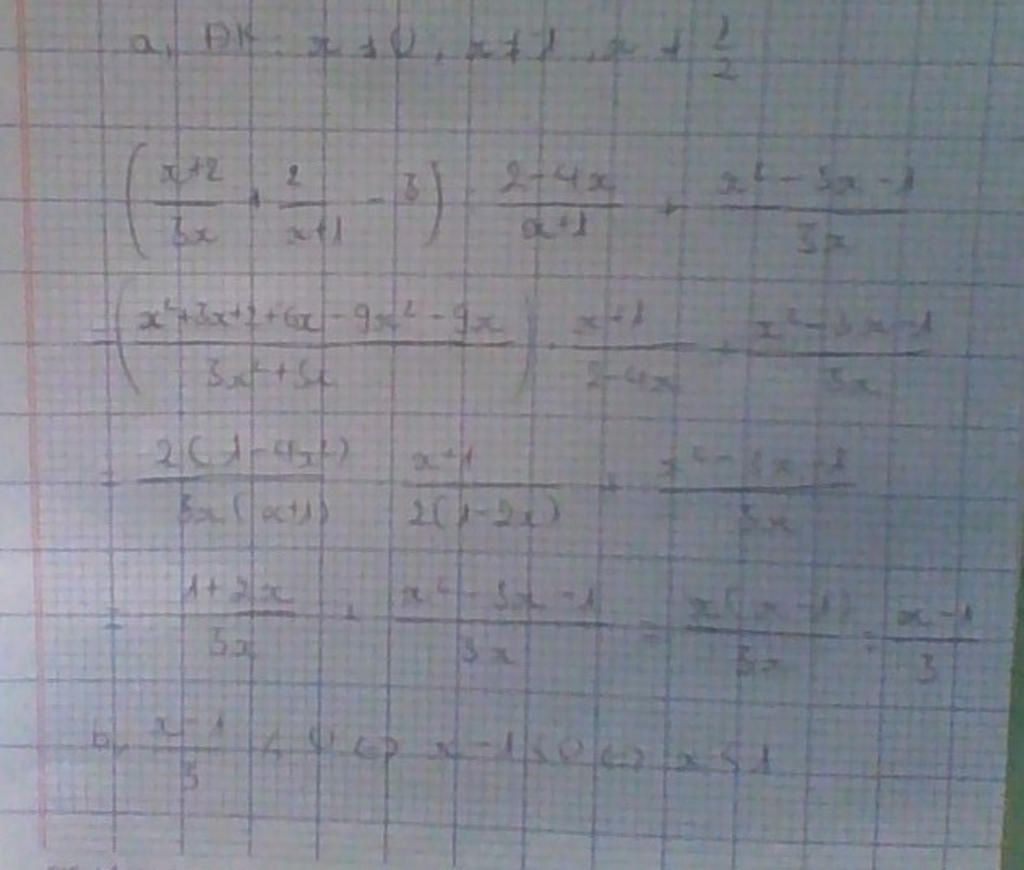 a, ĐK: x ≠ 0, x ≠ 1, x ≠ 1/2
((x+2)/(3x) + 2/(x+1) - 3) : (2-4x)/(x+1) + (x²-3x-1)/(3x)
= ((x²+3x+2+6x-9x²-9x)/(3x²+3x)) · (x+1)/(2-4x) + (x²-3x-1)/(3x)
= 2(1-4x²)/(3x(x+1)) · (x+1)/(2(1-2x)) + (x²-3x-1)/(3x)
= (1+2x)/(3x) + (x²-3x-1)/(3x) = x(x-1)/(3x) = (x-1)/3
b, (x-1)/3 < 0 <=> x-1<0 <=> x<1